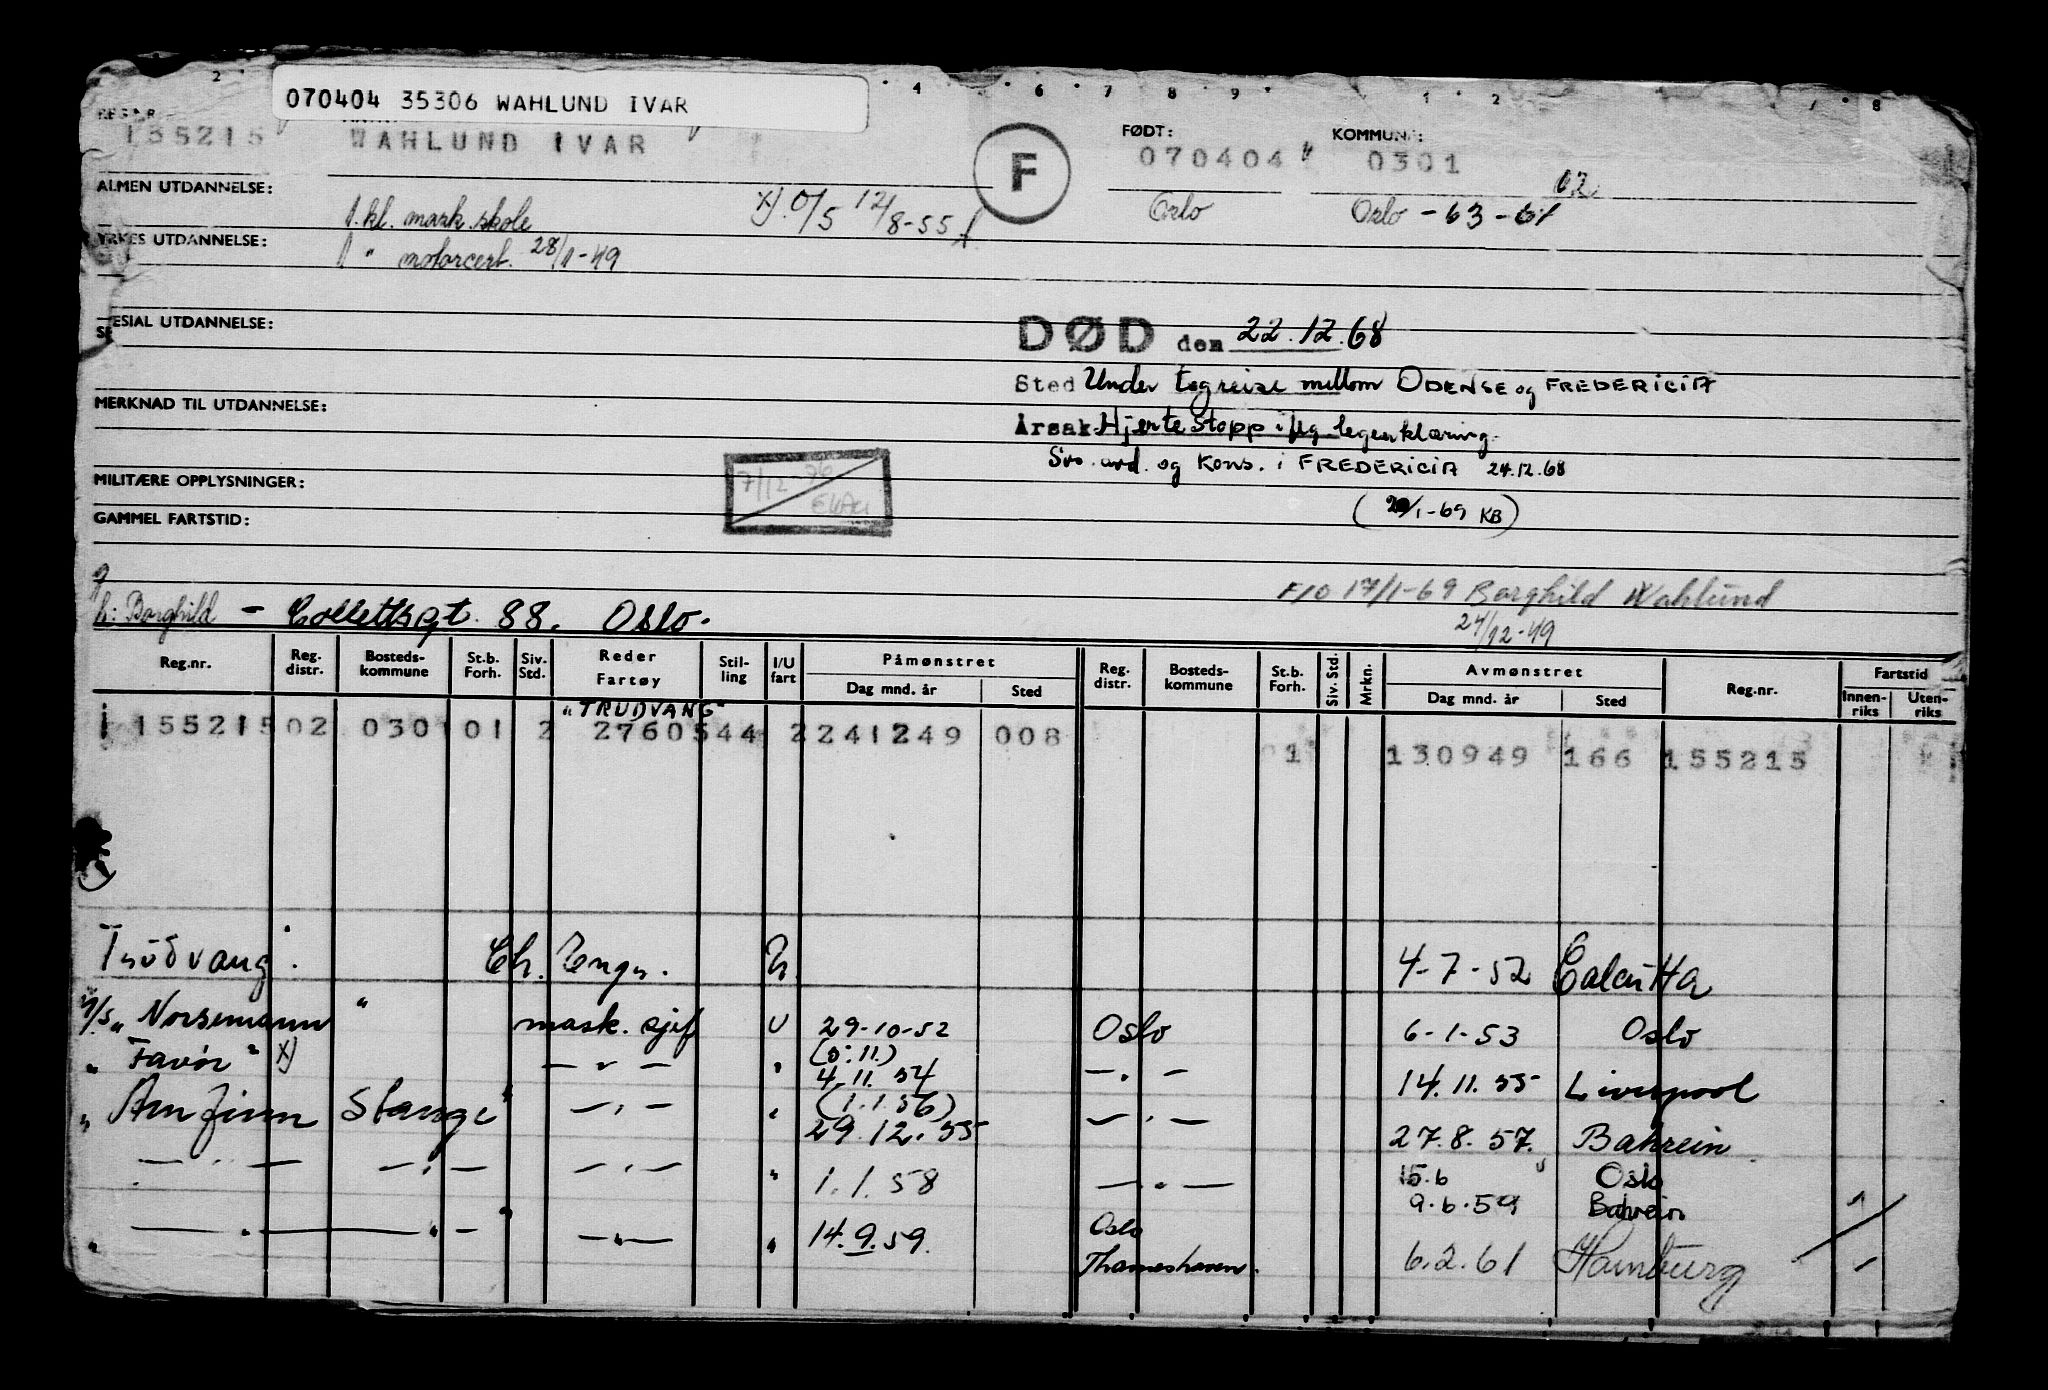 070404 35306 WAHLUND IVAR
155215 WAHLUND IVAR
F
FØDT: 070404
KOMMUNE: 0301
Oslo
Oslo - 63 - 61
62
ALMEN UTDANNELSE:
1. kl. mask. skole
x) 0/5 12/8-55
YRKES UTDANNELSE:
1 " motorcert. 28/1-49
SPESIAL UTDANNELSE:
DØD den 22.12.68
Sted Under togreise mellom ODENSE og FREDERICIA
MERKNAD TIL UTDANNELSE:
Årsak Hjerte Stopp iflg. legeerklæring.
Svo. avd. og Kons. i FREDERICIA 24.12.68
MILITÆRE OPPLYSNINGER:
7/12-76
(20/1-69 KB)
GAMMEL FARTSTID:
F/O 17/1-69 Borghild Wahlund
g
h: Borghild - Collettsgt. 88. Oslo.
24/12-49
Reg.nr. Reg. distr. Bosteds-kommune St.b. Forh. Siv. Std. Reder Fartøy Stil-ling I/U fart Påmønstret Dag mnd. år Sted Reg. distr. Bosteds-kommune St.b. Forh. Siv. Std. Mrkn. Avmønstret Dag mnd. år Sted Reg.nr. Fartstid Innen-riks Uten-riks
"TRUDVANG"
155215 02 0301 01 2 2760544 2 241249 008 1 130949 166 155215
Trudvang Ch. Engr. U. 4-7-52 Calcutta
M/S "Norsemann" mask. sjef U 29-10-52 Oslo 6-1-53 Oslo
(5.11.)
" Favör" x) — " — " 4.11.54 — " — 14.11.55 Liverpool
(1.1.56)
" Arn finn Stange" — " — " 29.12.55 — " — 27.8.57. Bahrein
— " — — " — — " — " 1.1.58 — " — 15.6 Oslo
9.6.59 Bahrein
" — " — " — — " — " 14.9.59. Oslo
Thameshaven. 6.2.61 Hamburg